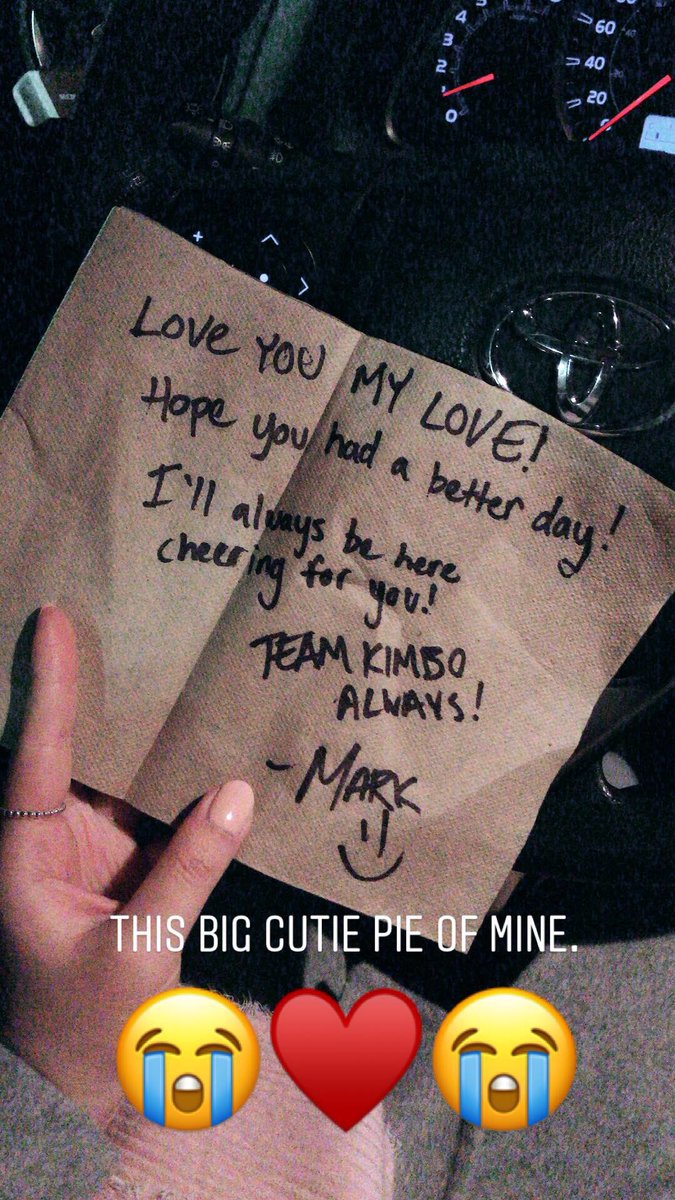 5
4
3
2
1
0
80
60
40
20
0
LOVE YOU MY LOVE!
Hope you had a better day!
I'll always be here
cheering for you!
TEAM KIMBO
ALWAYS!
- MARK
THIS BIG CUTIE PIE OF MINE.
😭♥️😭